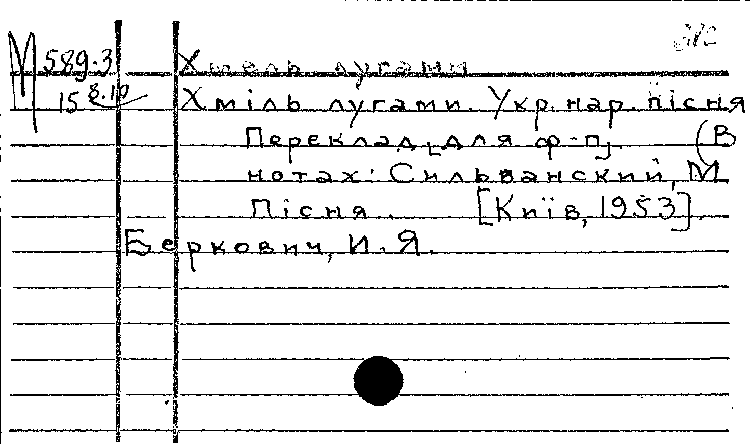 312
М 589.3 Хмель лугами
15 8.10 Хміль лугами. Укр. нар. пісня
Переклад для ф-п. (В
нотах: Сильванский, М
Пісня.. [Київ, 1953].
Беркович, И. Я.